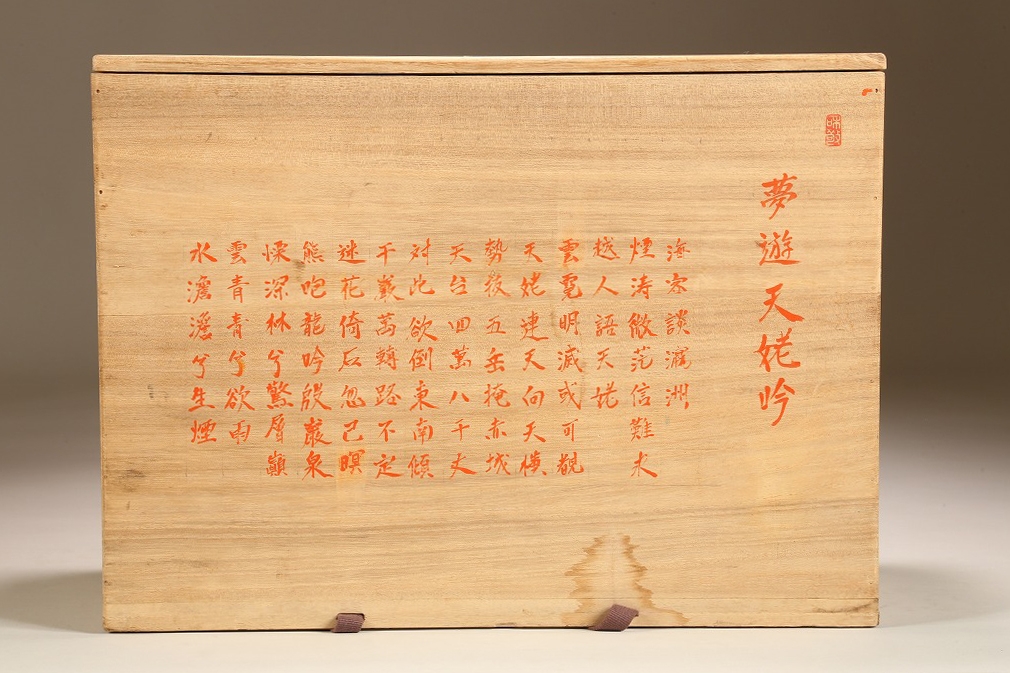 夢遊天姥吟
海客談瀛洲
煙涛微茫信難求
越人語天姥
雲霓明滅或可覩
天姥連天向天横
勢拔五岳掩赤城
天台四萬八千丈
対此欲倒東南傾
千載萬轉路不定
迷花倚石忽己暝
熊咆龍吟殷巌泉
慄深林兮驚層巓
雲青青兮欲雨
水澹澹兮生煙